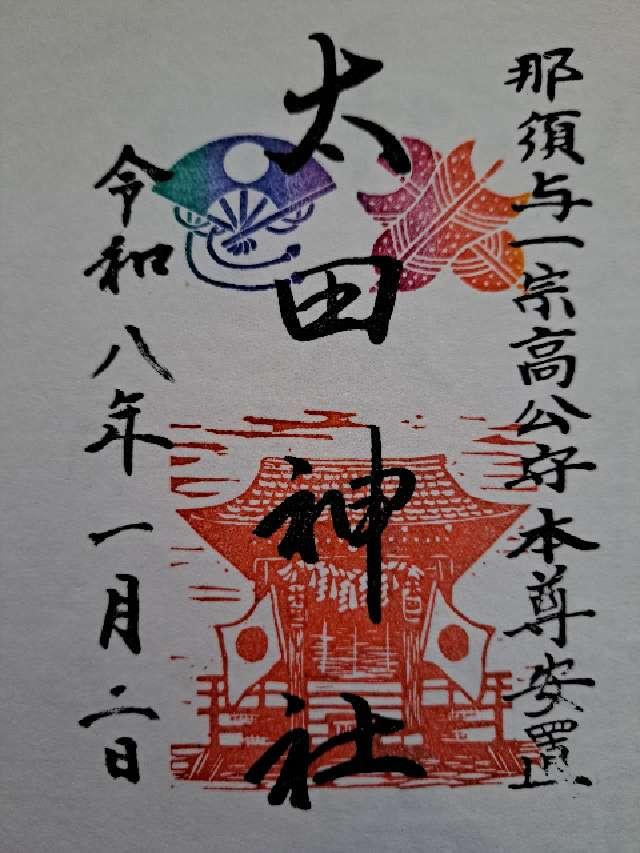 那須与一宗高公守本尊安置
太田神社
令和八年一月二日